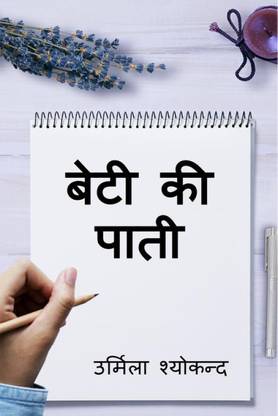 बेटी की
पाती
उर्मिला श्योकन्द